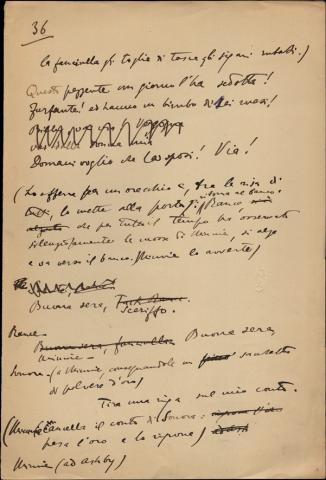 36
la fanciulla gli taglie di tasca gli sigari rubati.)
Questo pezzente un giorno l'ha sedotta!
Furfante! ed hanno un bimbo di sei mesi!
Vergogna
mia
Domani voglio che la sposi! Via!
(Lo afferra per un orecchio e, tra le risa di
tutti, lo mette alla porta.
Rance,
che per tutto il tempo ha osservato
silenziosamente le mosse di Minnie, si alza
e va verso il banco. Minnie lo avverte)
Buona sera, Sceriffo.
Rance -
Buona sera, fanciulla Buona sera,
Minnie -
Sonora - (a Minnie consegnandole un sacchetto
di polvere d'oro)
Tira una riga sul mio conto.
(Minnie cancella il conto di Sonora:
pesa l'oro e lo ripone)
Minnie (ad Ashby)